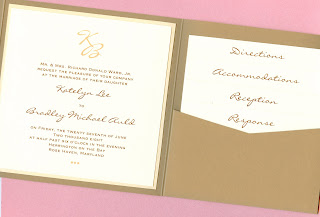 KB
Mr. & Mrs. Richard Donald Ward, Jr.
request the pleasure of your company
at the marriage of their daughter
Katelyn Lee
to
Bradley Michael Auld
on Friday, the twenty seventh of June
two thousand eight
at six o'clock in the evening
Herrington on the Bay
Rose Haven, Maryland
Directions
Accommodations
Reception
Response